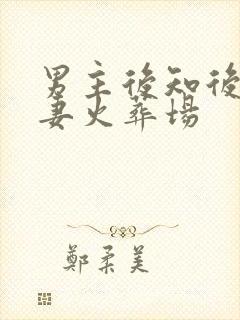 男主後知後
妻火葬場
鄭柔美